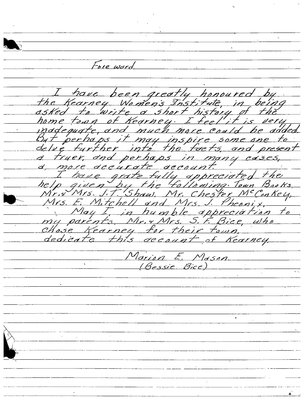 Foreword
I have been greatly honoured by
the Kearney Women's Institute, in being
asked to write a short history of the
home town of Kearney. I feel it is very
inadequate, and much more could be added.
But perhaps it may inspire some one to
delve further into the facts, and present
a truer, and perhaps in many cases,
a more accurate account.
I have gratefully appreciated the
help given by the following: Town Books
Mr. & Mrs. J.T. Shaw, Mr. Chester McConkey,
Mrs. E. Mitchell and Mrs. J. Pheonix.
May I, in humble appreciation to
my parents, Mr. & Mrs. S.F. Bice, who
chose Kearney for their town,
dedicate this account of Kearney.
Marion E. Mason.
(Bessie Bice)